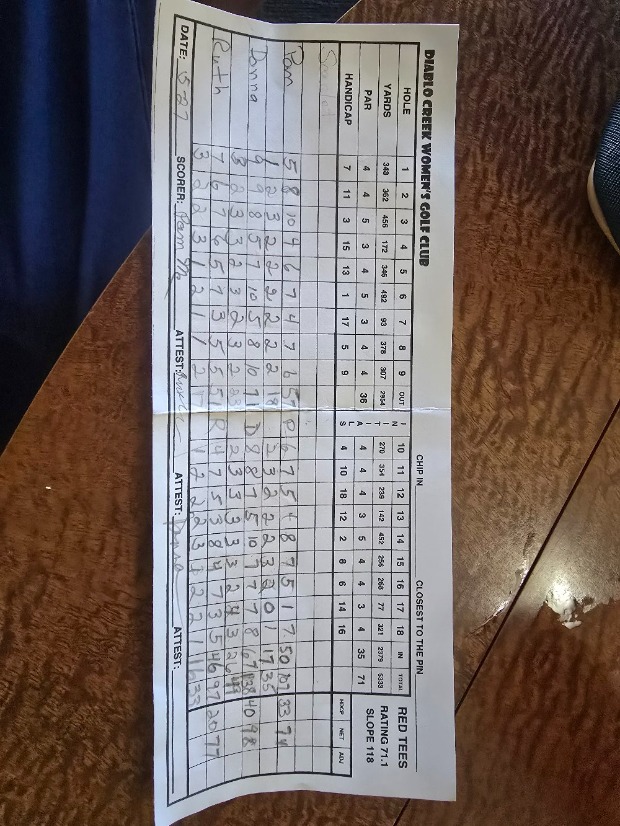 DIABLO CREEK WOMEN'S GOLF CLUB CHIP IN CLOSEST TO THE PIN
HOLE 1 2 3 4 5 6 7 8 9 OUT INITIALS 10 11 12 13 14 15 16 17 18 IN TOTAL RED TEES
YARDS 348 362 456 172 346 492 93 378 307 2954 270 354 239 142 452 256 268 77 321 2379 5333 RATING 71.1
PAR 4 4 5 3 4 5 3 4 4 36 4 4 4 3 5 4 4 3 4 35 71 SLOPE 118
HANDICAP 7 11 3 15 13 1 17 5 9 4 10 18 12 2 8 6 14 16 HDCP NET ADJ
Pam 5 8 10 4 6 7 4 7 6 57 P 6 7 5 4 8 7 5 1 7 50 107 33 74
1 2 3 2 2 2 2 2 2 18 2 3 2 2 2 3 2 0 1 17 35
Donna 9 9 8 5 7 10 5 8 10 71 D 8 8 7 5 10 7 7 7 8 67 138 40 98
3 2 3 3 2 3 2 3 2 2 3 3 3 3 3 2 4 3 26
Ruth 7 6 7 6 5 7 3 5 5 51 R 4 7 5 3 8 4 7 3 5 46 97 20 77
3 2 2 3 1 2 1 1 2 17 1 2 2 2 3 1 2 2 1 16 33
DATE: 5-27 SCORER: Pam M ATTEST: ATTEST: Donna ATTEST: